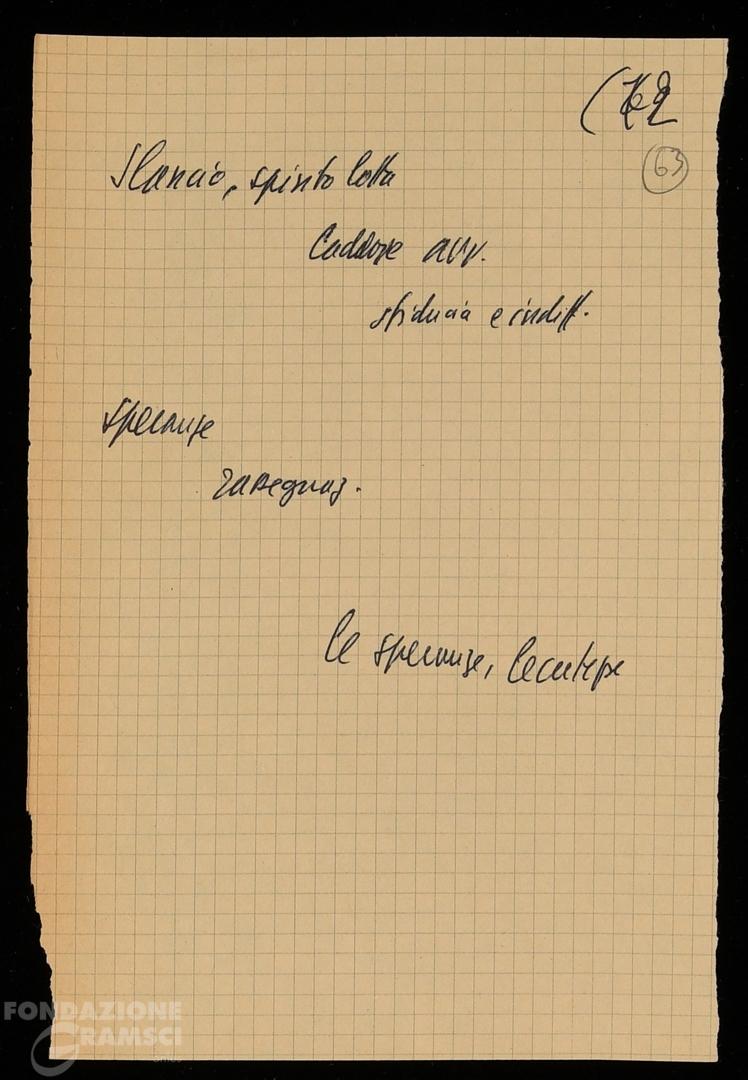 63
Slancio, spirito lotta
avv.
sfiducia e indiff.
speranze
rassegnaz.
le speranze, le
FONDAZIONE
GRAMSCI